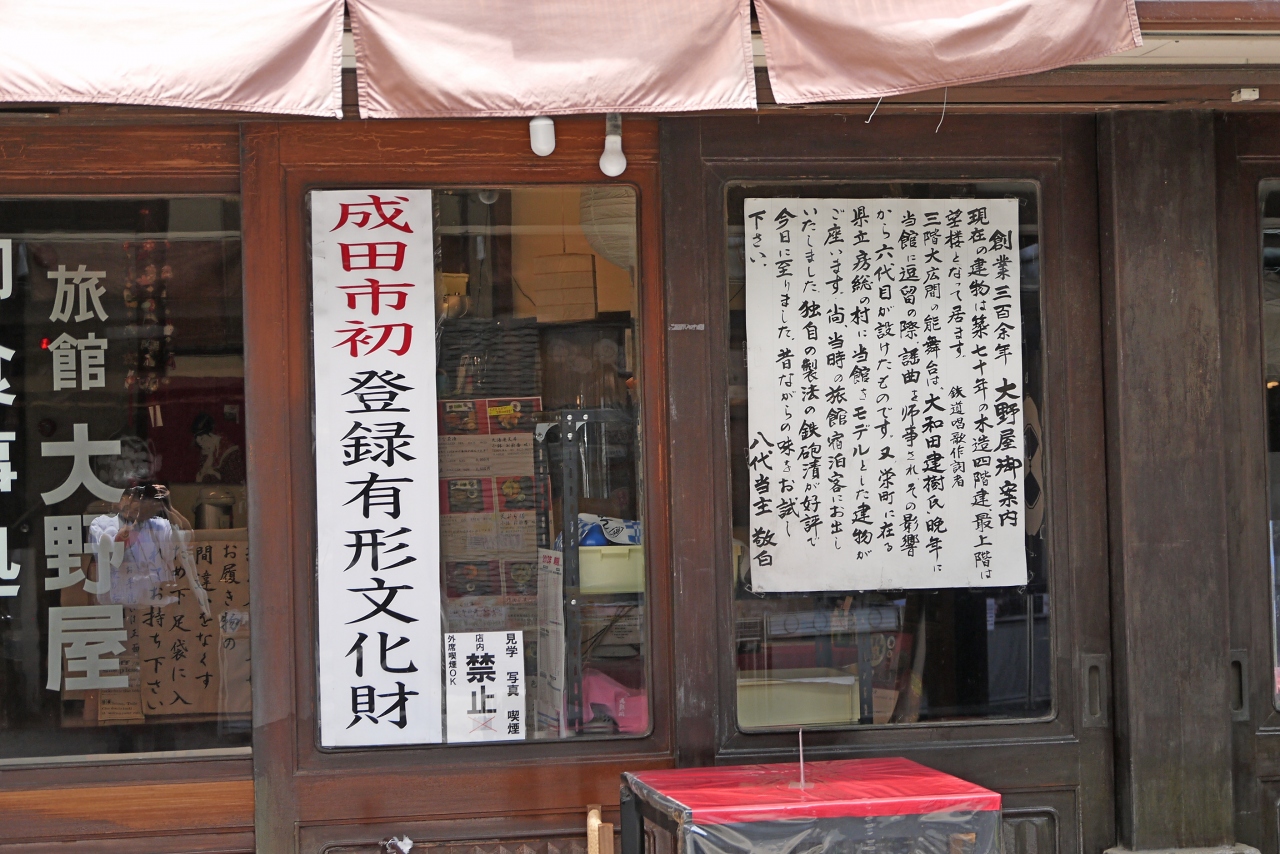 創業三百余年 大野屋御案内
現在の建物は築七十年の木造四階建最上階は
望楼となって居ます。 鉄道唱歌作詞者
三階大広間の能舞台は、大和田建樹氏晩年に
当館に逗留の際、謡曲を师事されその影響
から六代目が設けたものです。又栄町に在る
県立房総の村に当館をモデルとした建物が
ご座います。尚、当時の旅館宿泊客にお出し
いたしました、独自の製法の鉄砲漬が好評で
今日に至りました。昔ながらの味をお試し
下さい。
八代当主 敬白
成田市初 登録有形文化財
見学 写真 喫煙
店内 禁止
外席喫煙OK
旅館 大野屋
お食事処
お履き物の
間違いをなくす
ため下足袋に入
お持ち下さい